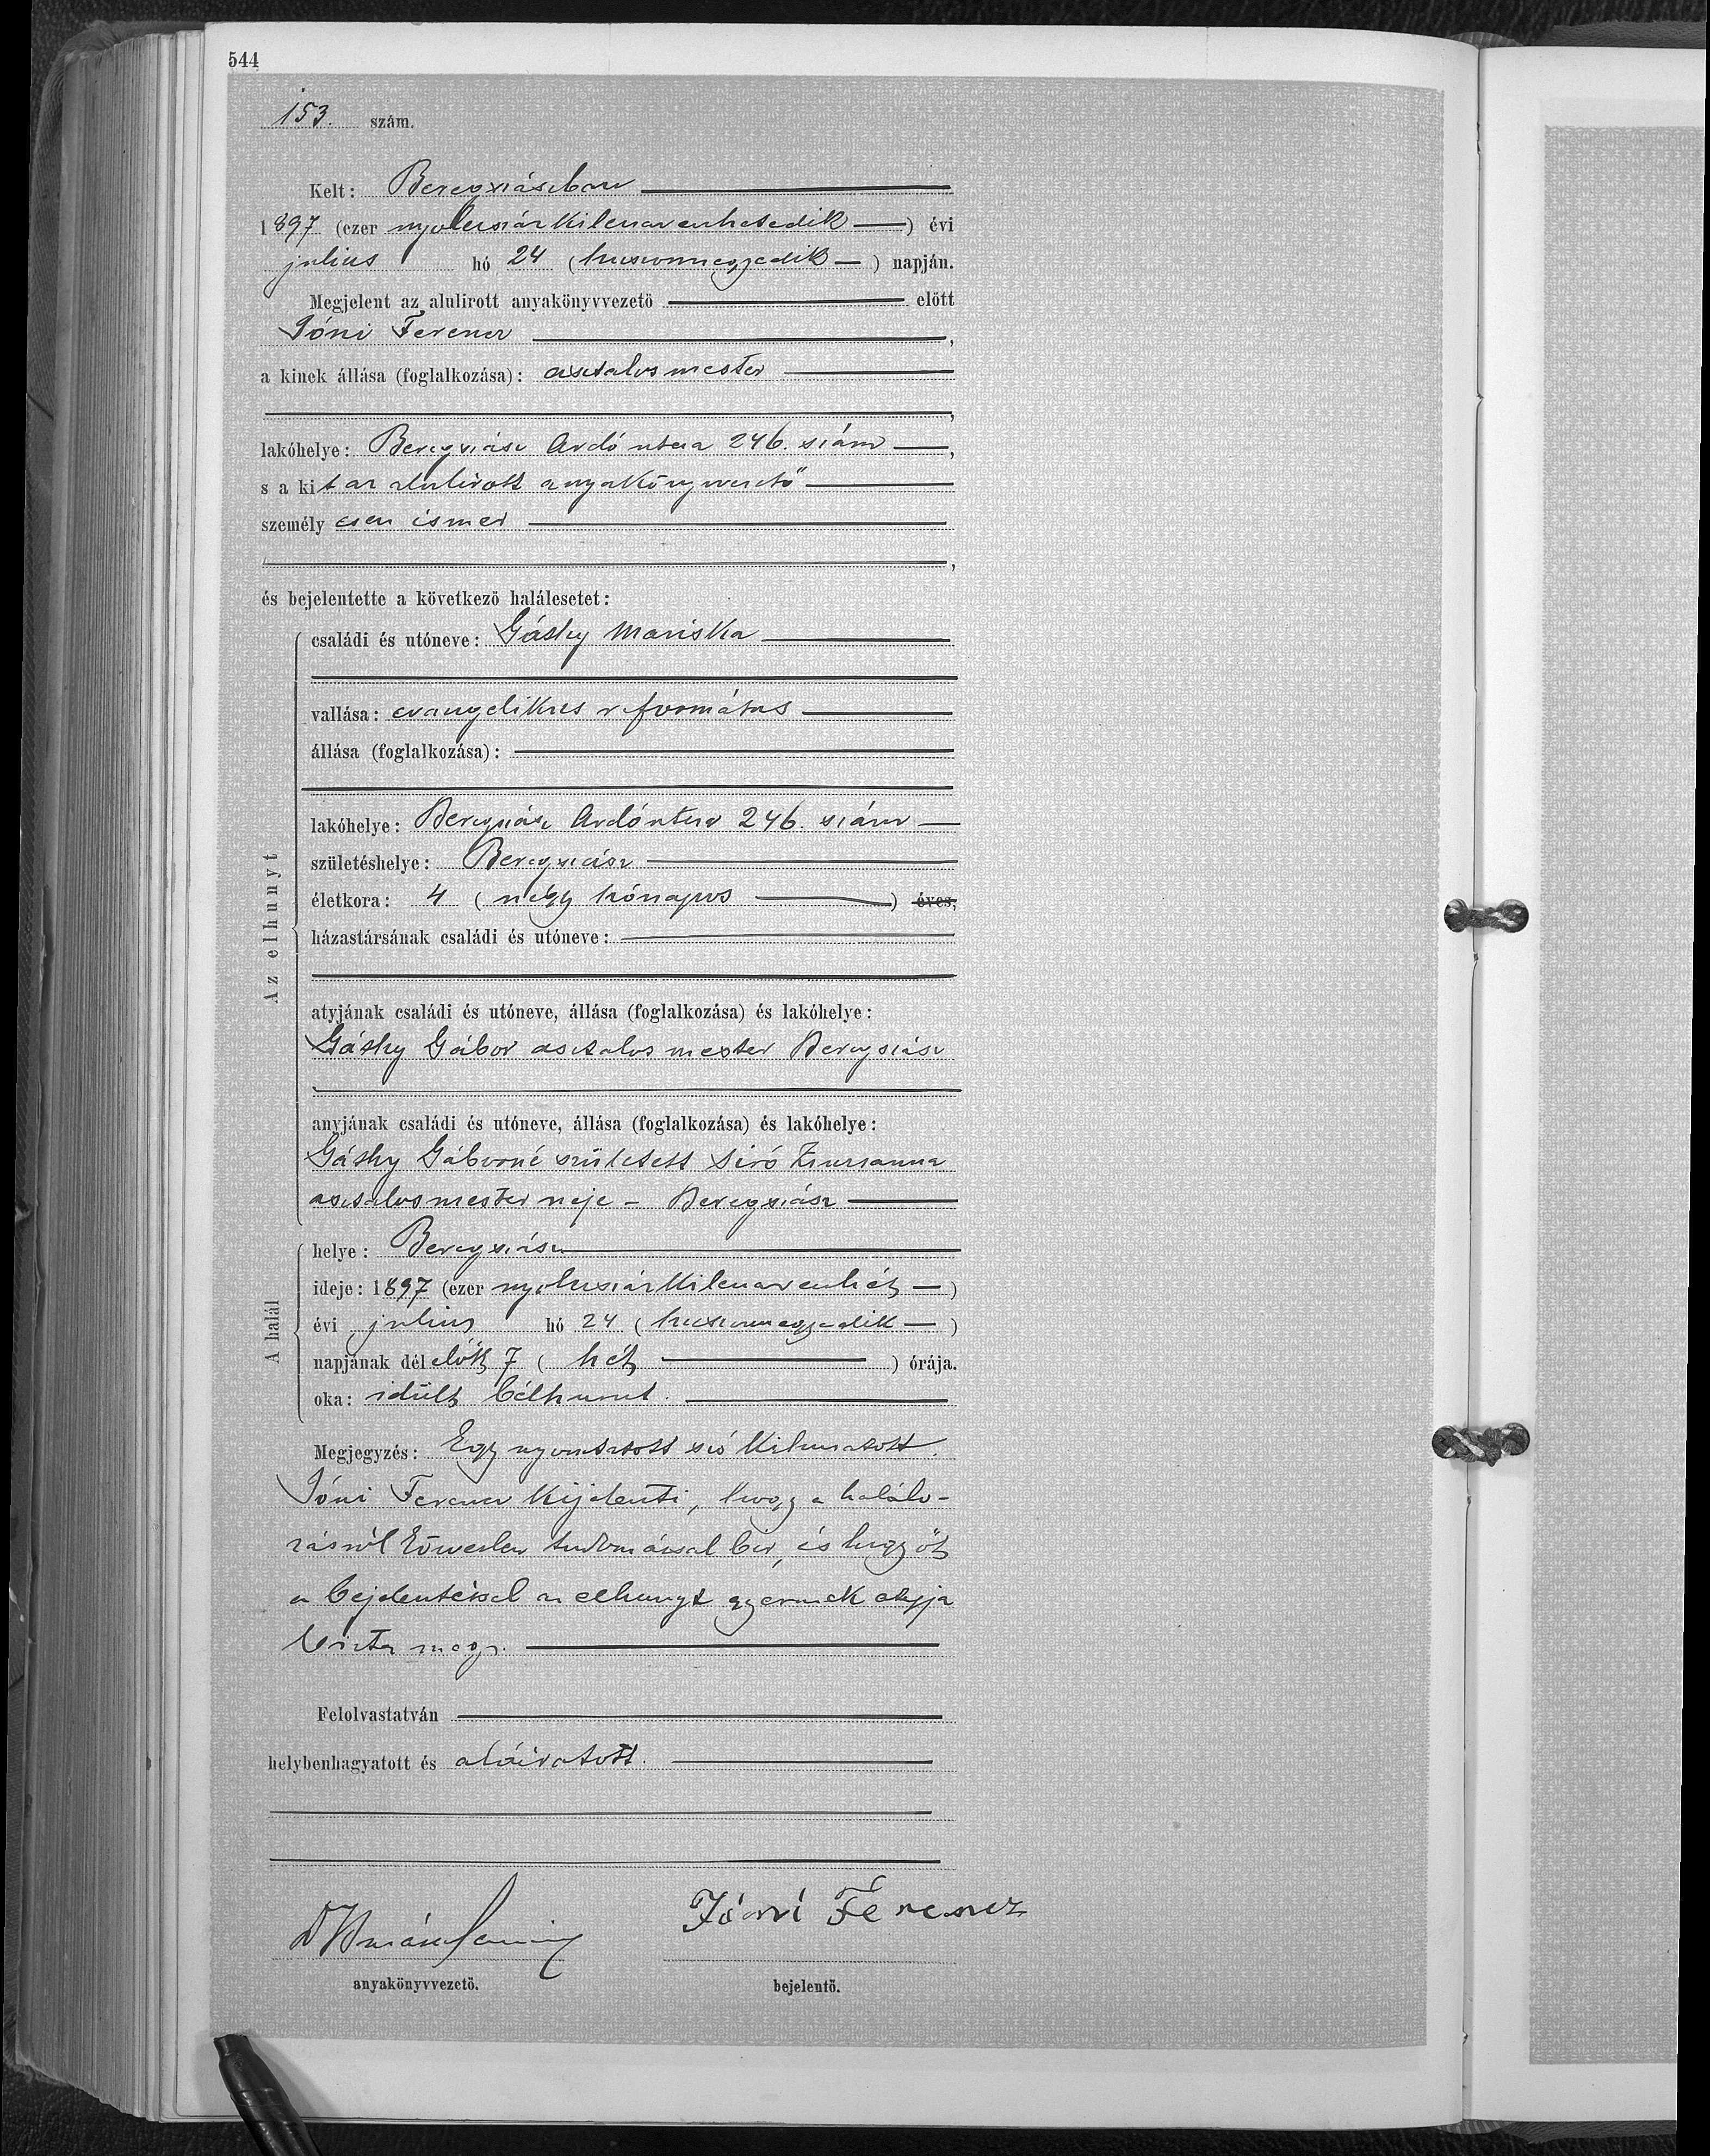 544
153. szám.
Kelt: Beregszászban
1897 (ezer nyolczszázkilenczvenhetedik) évi
julius hó 24 (huszonnegyedik) napján.
Megjelent az alulirott anyakönyvvezető előtt
Jóni Ferencz,
a kinek állása (foglalkozása): asztalos mester
lakóhelye: Beregszász Ardó utcza 246. szám,
s a kit az alulirott anyakönyvvezető
személyesen ismer
és bejelentette a következő halálesetet:
Az elhunyt
családi és utóneve: Gáthy Mariska
vallása: evangelikus református
állása (foglalkozása):
lakóhelye: Beregszász Ardó utcza 246. szám
születéshelye: Beregszász
életkora: 4 (négy hónapos) éves,
házastársának családi és utóneve:
atyjának családi és utóneve, állása (foglalkozása) és lakóhelye:
Gáthy Gábor asztalos mester Beregszász
anyjának családi és utóneve, állása (foglalkozása) és lakóhelye:
Gáthy Gáborné született Zsuzsanna
asztalosmester neje - Beregszász
A halál
helye: Beregszász
ideje: 1897 (ezer nyolczszázkilenczvenhét)
évi julius hó 24 (huszonnegyedik)
napjának délelőtt 7 (hét) órája.
oka: idült bélhurut.
Megjegyzés: Egy nyomtatott szó kihuzatott.
Jóni Ferencz kijelenti, hogy a halálo-
zásról közvetlen tudomással bir, és hogy őt
a bejelentéssel az elhunyt gyermek atyja
bizta meg.
Felolvastatván
helybenhagyatott és aláiratott.
Jóni Ferencz
anyakönyvvezető. bejelentő.